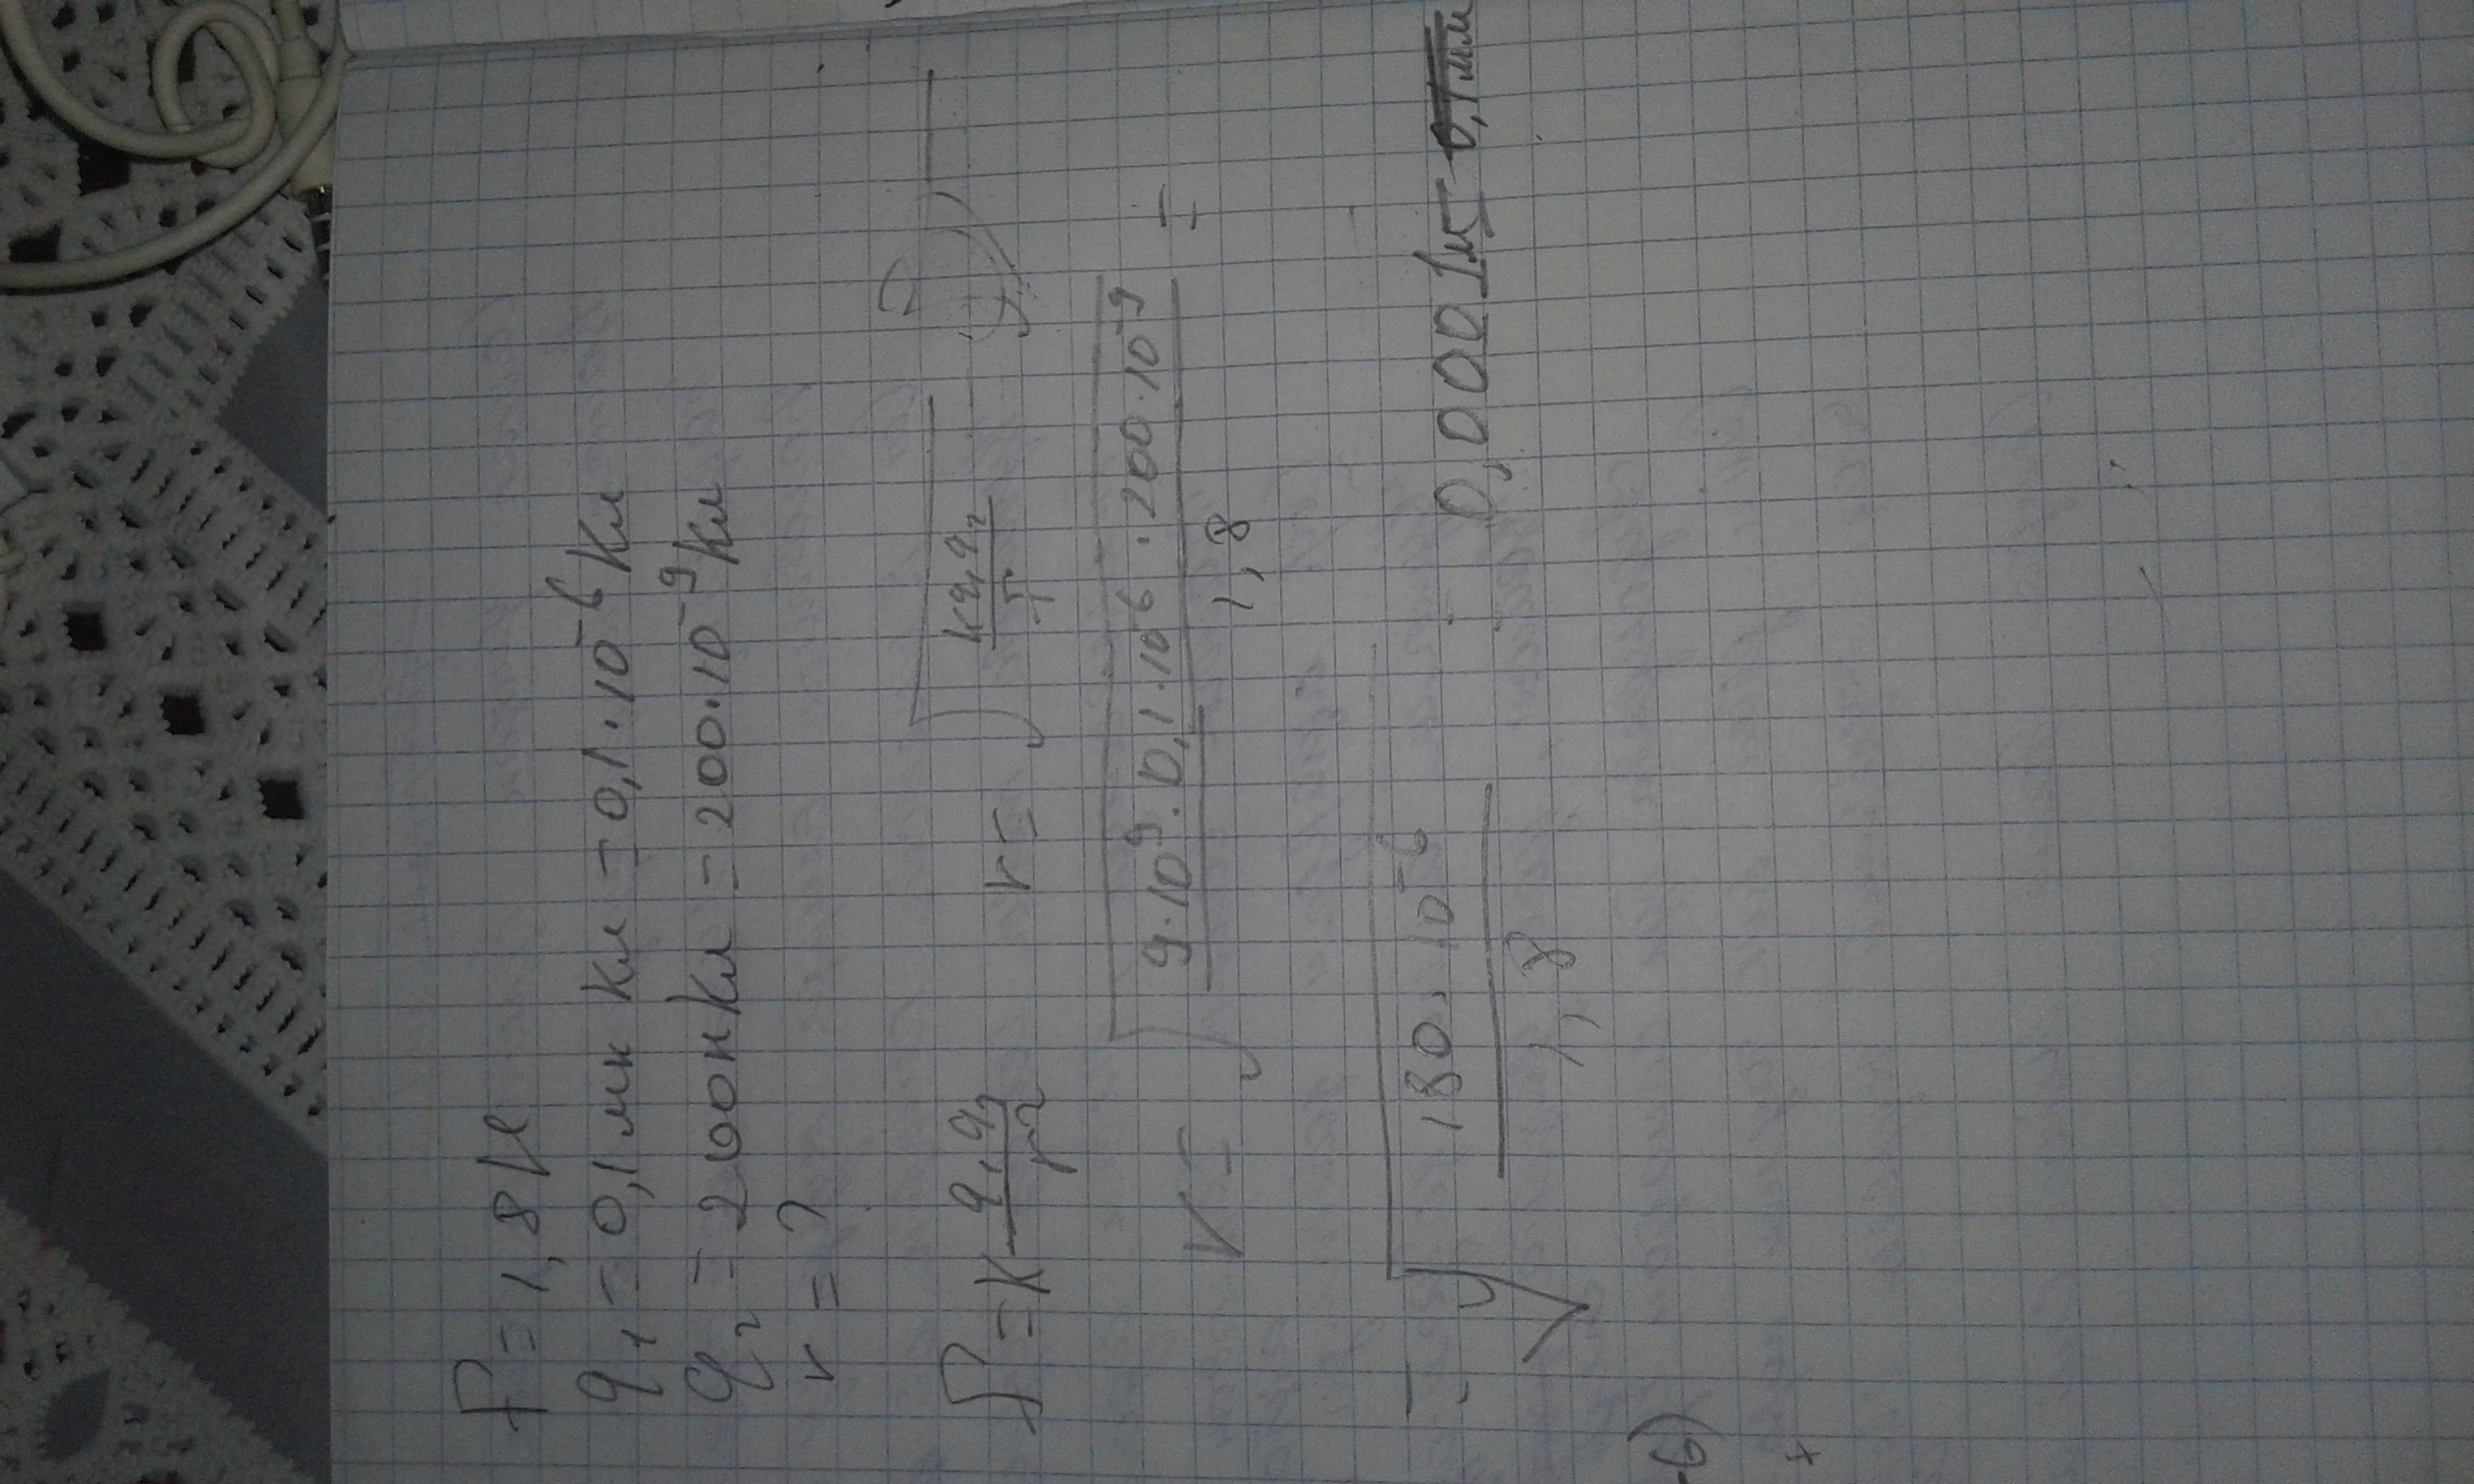 F = 1,8 Н
q₁ = 0,1 мк Кл = 0,1·10⁻⁶ Кл
q₂ = 200 н Кл = 200·10⁻⁹ Кл
r = ?
F = k q₁q₂/r² r = √(kq₁q₂/F)
r = √(9·10⁹·0,1·10⁻⁶·200·10⁻⁹/1,8) =
= √(180·10⁻⁶/1,8) 0,0001м